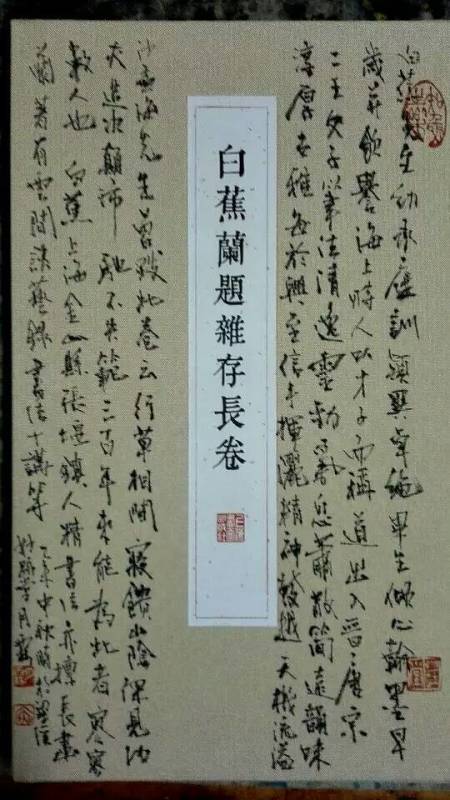 白蕉先生幼承庭訓穎異卓絕畢生傾心翰墨早
歲并飲譽海上時人以才子而稱道出入晉唐宗
二王父子以筆法清逸靈動氣息蕭散簡遠韻味
淳厚古雅每於興至信手揮灑精神發越天機流溢
白蕉蘭題雜存長卷
沙孟海先生曾跋此卷云行草相間寢饋山陰深見功
夫造次顛沛馳不失範三百年來能為此者寥寥
數人也 白蕉上海金山縣張堰鎮人精書法亦擅長畫
蘭著有雲間談藝錄書法十講等
乙未中秋